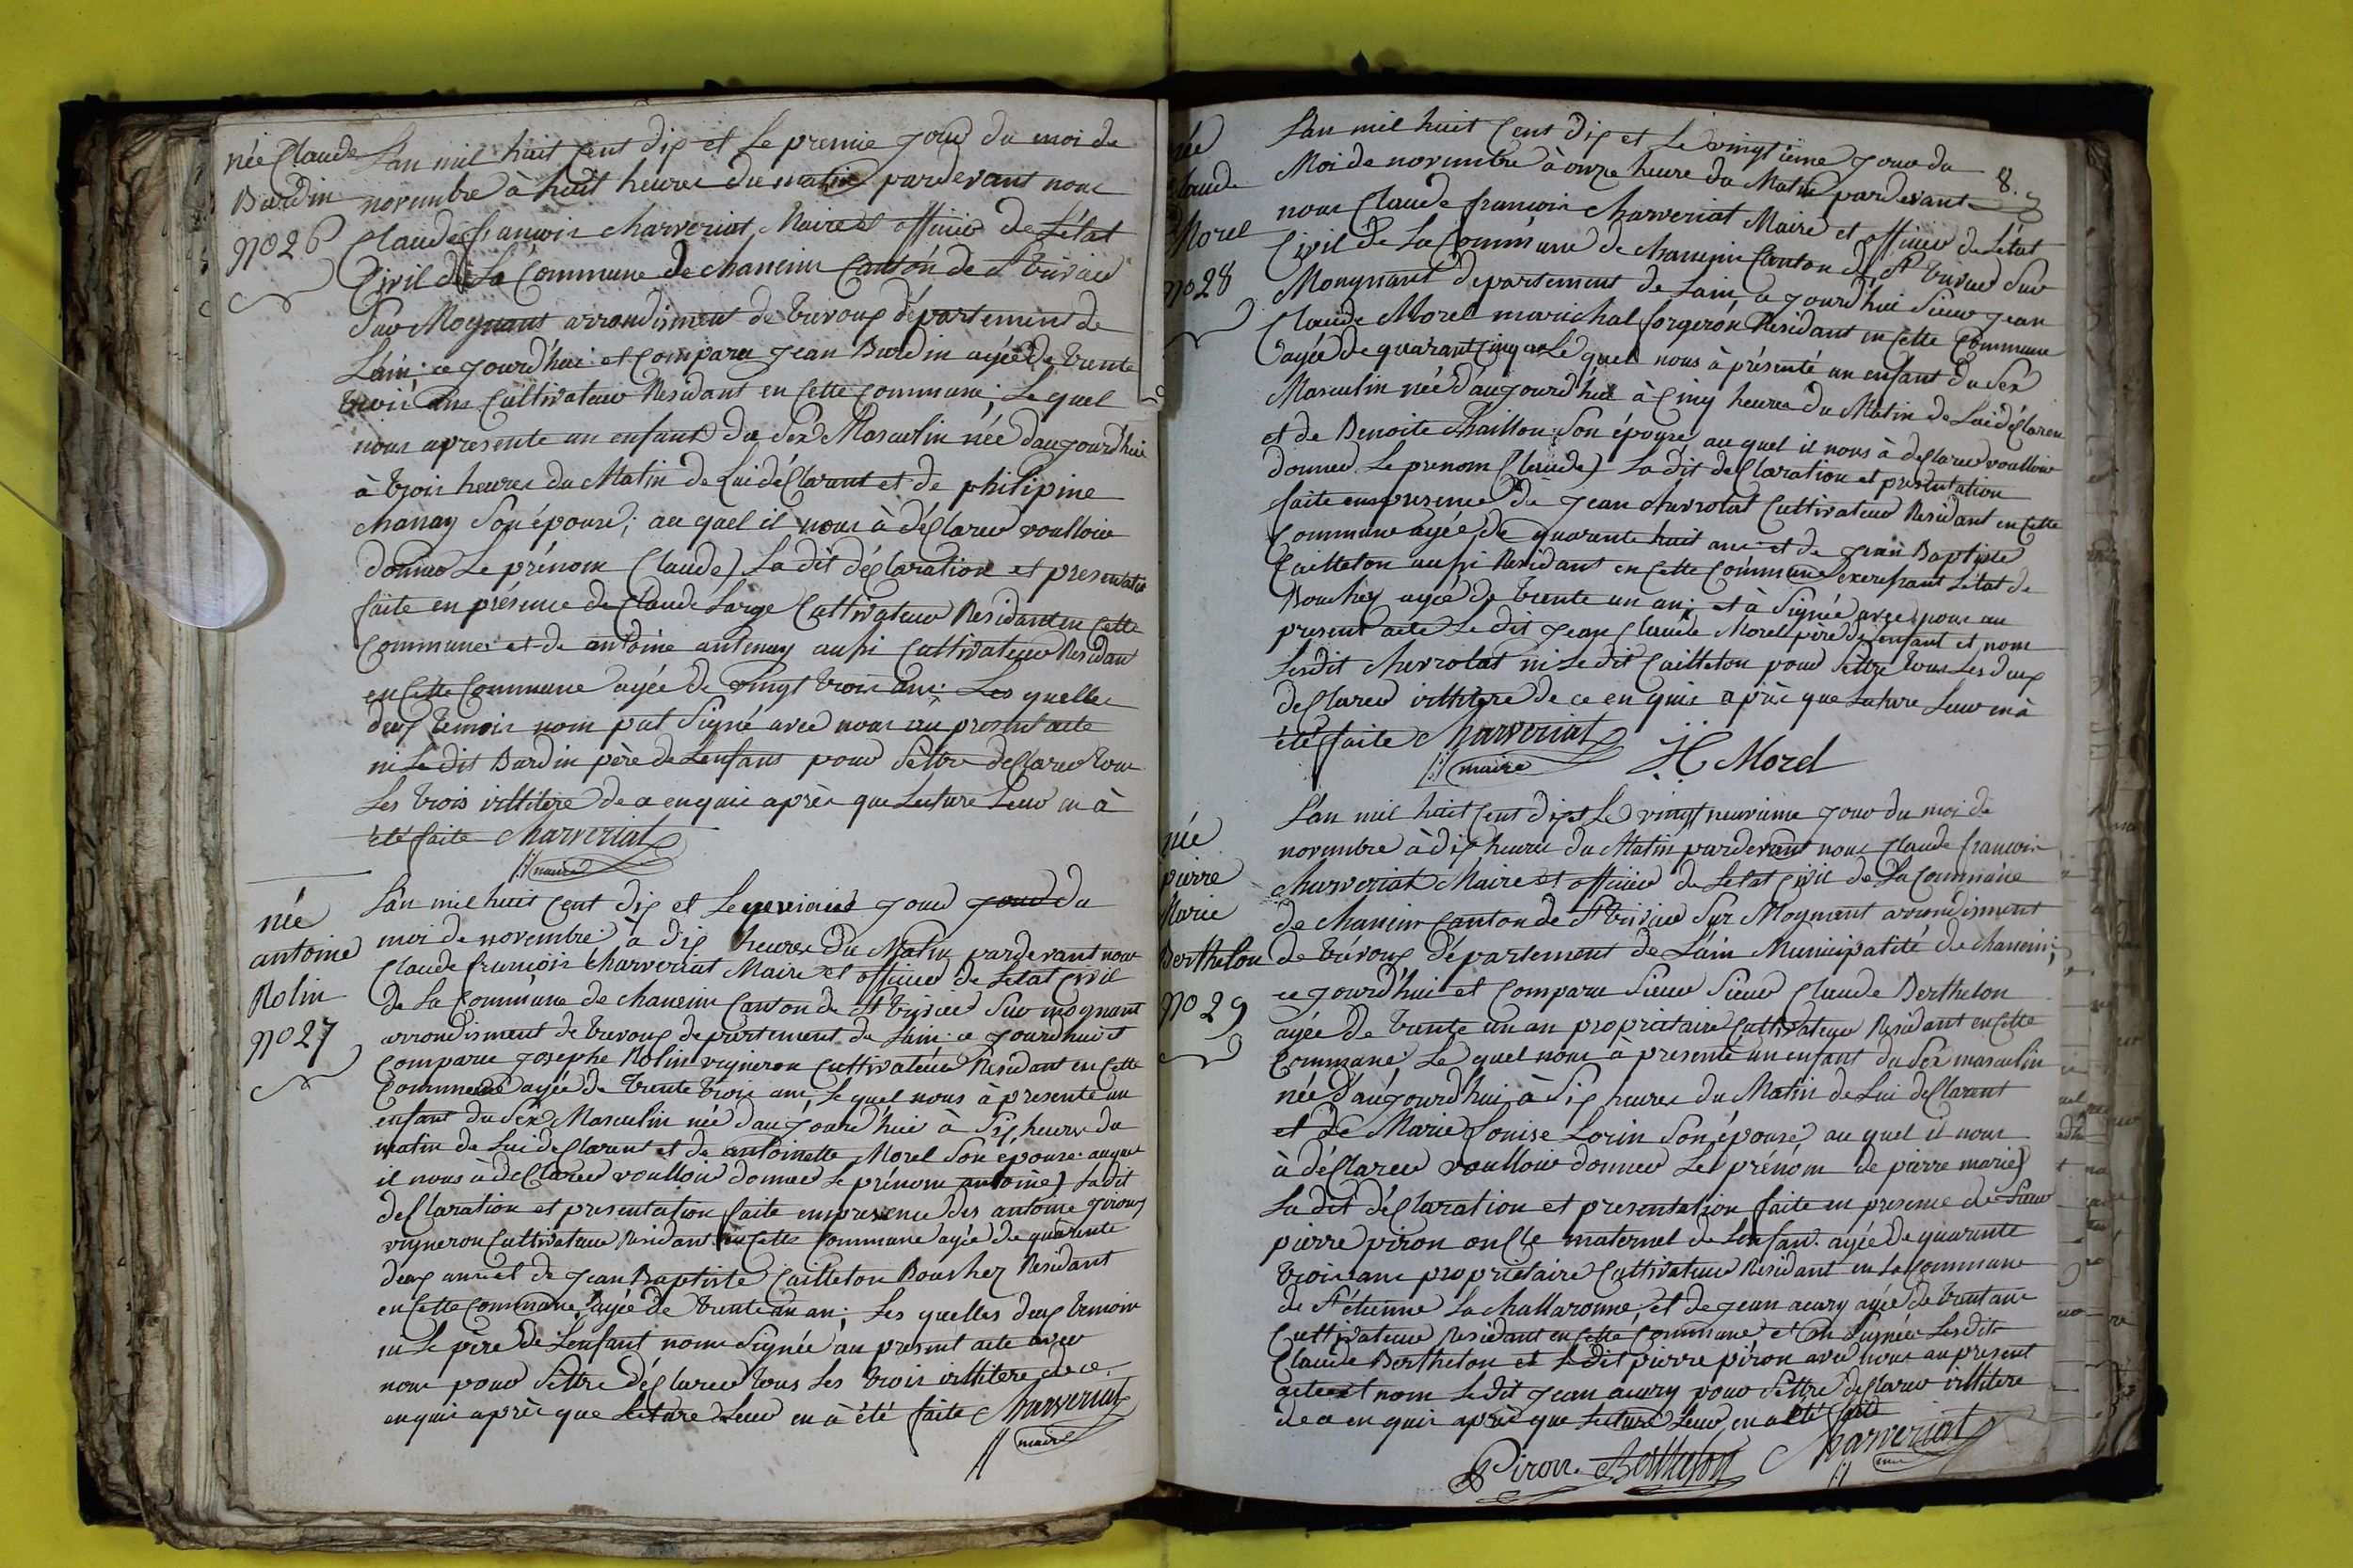 née Claude
Burdin
no 26
L'an mil huit Cent dix et Le premie jour du moi de
novembre à huit heures du matin pardevant nous
Claude francois Charveriat Maire et officier de L'état
Civil de La Commune de chaneins Canton de St trivier
Sur Moignans arrondisment de trevoux département de
L'ain: ce jourd'hui et Comparu Jean Burdin agée de trente
trois ans Cultivateur Residant en Cette Commune; Le quel
nous apresente un enfant du Sex Masculin née daujourd'hui
à trois heures du Matin de Lui déClarant et de philipine
Chanay Son épouse; au quel il nous à déClarer voulloir
donner Le prénom (Claude) La dit déClaration et presentatio
faite en présence de Claude Large Cultivateur Residant en Cette
Commune: et de antoine antenay aussi Cultivateur Residan
en Cette Commune agée de vingt trois ans: Les quelles
deux temoin nom pat Signé avec nous au present acte
ni Le dit Burdin père de Lenfant pour Settre deClarer tous
Les trois illitere de ce enquis après que Lecture Leur en à
été faite Charveriat
maire
née
antoine
Rolin
no 27
L'an mil huit Cent dix et Le jour jour du
moi de novembre à dix heures du Matin pardevant nous
Claude francois Charveriat Maire et officier de Letat Civil
de La Commune de chaneins Canton de St trivier Sur mognant
arrondisment de trevoux departement de Lain: ce jourdhui et
Comparu Josephe Rolin vigneron Cultivateur Residant en Cette
Commune agée de trente trois ans, Le quel nous à presente un
enfant du Sex Masculin née daujourd'hui à Six heures du
matin de Lui deClarant et de antoinette Morel Son épouse: auquel
il nous à deClarer voulloir donner Le prénom antoine) La dit
deClaration et presentation faite empresence des antoine giroux
vigneron Cultivateur Residant en Cette Commune agée de quarante
deux ans et de Jean Baptiste Cailleton Boucher Residant
en Cette Commune, agée de trente un an; Les quelles deux temoin
ni Le père de Lenfant nom Signée au present acte avec
nous pour Settre déClarer tous Les trois illitere de ce
enquis après que Lecture Leur en à été faite Charveriat
maire
8.
née
Claude
Morel
no 28
L'an mil huit Cent dix et Le vingtième jour du
Moi de novembre à onze heure du Matin pardevant
nous Claude francois Charveriat Maire et officier de Létat
Civil de La Commune de chaneins Canton de St trivier Sur
Mongnant departement de Lain, ce jourd'hui Sieur Jean
Claude Morel marichal forgeron Residant en Cette Commune
agée de quarant Cinq an Le quel nous à présenté un enfant du Sex
Masculin née d'aujourd'hui à Cinq heures du Matin de Lui déClaren
et de Benoite Chaillon Son épouse, au quel il nous à deClarer voulloir
donner Le prenom (Claude) La dit deClaration et presentation
faite en presence de Jean Chevrolat Cultivateur Residant en Cette
Commune agée de quarante huit ans et de Jean Baptiste
Cailleton aussi Residant en Cette Commune exersant Létat de
Boucher agée de trente un an; et à Signée avec nous au
present acte Le dit Jean Claude Morel père de Lenfant et nom
Lesdit Chevrolat ni Le dit Cailleton pour Settre tous Les deux
deClarer illitere de ce en quis après que Lecture Leur en à
été faite Charveriat JC Morel
maire
née
pierre
Marie
Berthelon
no 29
L'an mil huit Cent dix et Le vingt neuvième jour du moi de
novembre à dix heures du Matin pardevant nous Claude francois
Charveriat Maire et officier de Letat Civil de La Commune
de chaneins Canton de St trivier Sur Moyment arrondisment
de trévoux département de L'ain Municipatité de chaneins;
ce jourd'hui et Comparu Sieur Sieur Claude Berthelon
agée de trente un an propriétaire Cultivateur Residant en Cette
Commune. Le quel nous à presente un enfant du Sex masculin
née d'aujourd'hui à Six heures du Matin de Lui deClarant
et de Marie Louise Lorin Son épouse, au quel il nous
à déClarer voulloir donner Les prénom de pierre marie)
La dit déClaration et presentation faite en presence de Sieur
pierre piron onCle maternel de Lenfan. agée de quarante
trois ans propriétaire Cultivateur Residant en La Commune
de St étienne La Challaronne, et de Jean aeury agée de trent ans
Cultivateur Residant en Cette Commune et on Signée Lesdits
Claude Berthelon et Le dit pierre piron avec nous au present
acte et nom Le dit Jean aeury pour Settre deClarer illitere
de ce en quis après que Lecture Leur en a été faite
Piron Berthelon Charveriat